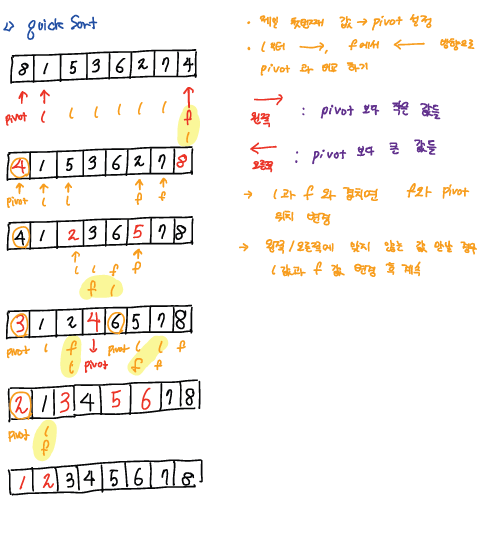 => quick Sort
8 1 5 3 6 2 7 4
pivot i i i i i i f
i
4 1 5 3 6 2 7 8
pivot i i f f
4 1 2 3 6 5 7 8
i i f f
f i
3 1 2 4 6 5 7 8
pivot i f pivot i i f
i pivot f f
2 1 3 4 5 6 7 8
pivot i
f
1 2 3 4 5 6 7 8
· 제일 첫번째 값 → pivot 설정
· i 부터 →, f에서 ← 방향으로
pivot 와 비교 하기
→
왼쪽 : pivot 보다 작은 값들
←
오른쪽 : pivot 보다 큰 값들
→ i과 f 와 겹치면 f와 pivot
위치 변경
→ 왼쪽/오른쪽에 맞지 않는 값 만날 경우
i값과 f 값 변경 후 계속